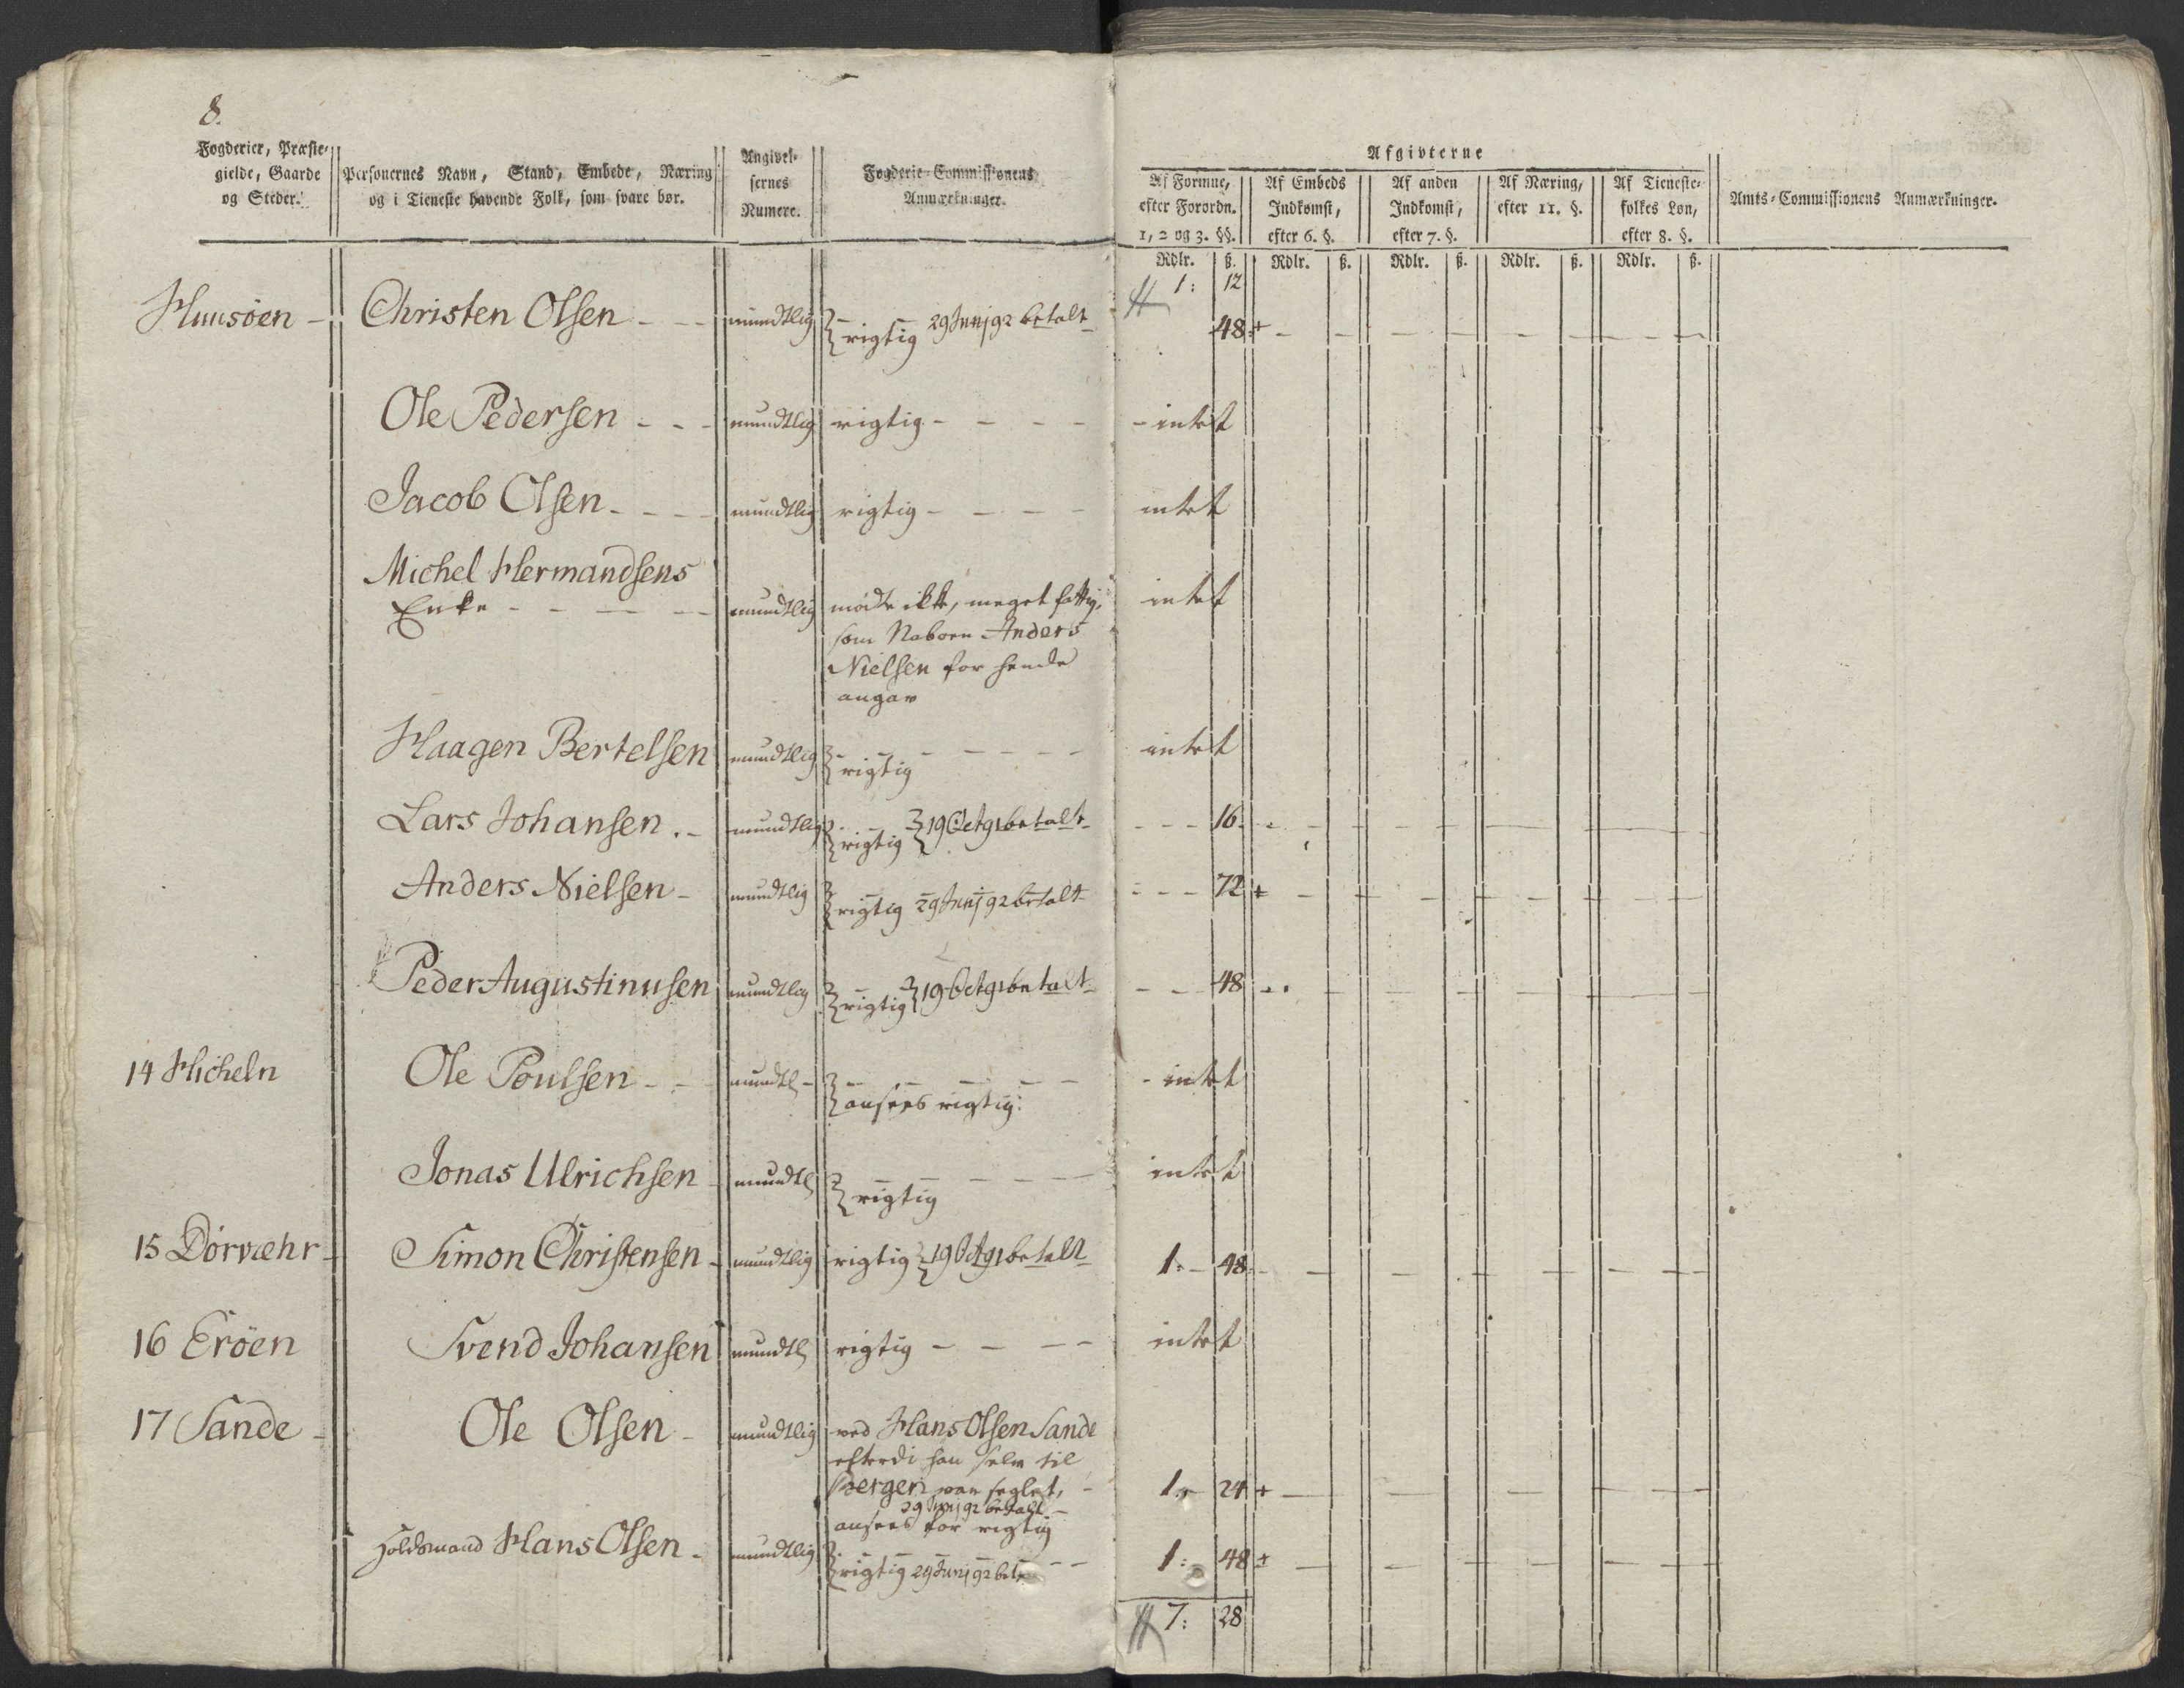 8.
Fogderier, Præste-
gielde, Gaarde
og Steder.
Personernes Navn, Stand, Embede, Næring
og i Tieneste havende Folk, som svare bør.
Angivel-
sernes
Numere.
Fogderie-Commissionens
Anmærkninger.
Afgivterne
Af Formue,
efter Forordn.
1, 2 og 3. §§.
Af Embeds
Indkomst,
efter 6. §.
Af anden
Indkomst,
efter 7. §.
Af Næring,
efter 11. §.
Af Tieneste-
folkes Løn,
efter 8. §.
Amts-Commissionens Anmærkninger.
Rdlr. ß. Rdlr. ß. Rdlr. ß. Rdlr. ß. Rdlr. ß.
1: 12
Huusöen - Christen Olsen - - - mundtlig rigtig 29 Junj 92 betalt 48 +
Ole Pedersen - - - mundtlig rigtig - - - - - intet
Jacob Olsen - - - - mundtlig rigtig - - - - intet
Michel Hermandsens
Enke - - - - - mundtlig mødte ikke, meget fattig, intet
som Naboen Anders
Nielsen for hende
angav
Haagen Bertelsen mundtlig rigtig - - - - - - intet
Lars Johansen . - mundtlig rigtig 19 Oct 91 betalt - - - 16.
Anders Nielsen - mundtlig rigtig 29 Junj 92 betalt - - - 72 +
Peder Augustinusen mundtlig rigtig 19 Oct 91 betalt - - - 48
14 Hicheln Ole Poulsen - - mundtl - ansees rigtig: - intet
Jonas Ulrichsen - mundtl rigtig - - - - - - intet
15 Dorvæhr - Simon Christensen - mundtlig rigtig 19 Oct 91 betalt 1: - 48
16 Eröen Svend Johansen mundtl rigtig - - - - intet
17 Sande - Ole Olsen - mundtlig ved Hans Olsen Sande
efterdi han selv til
Bergen var seglet, - 1: - 24 +
29 Junj 92 betalt -
ansees for rigtig
Hans Olsen - mundtlig rigtig 29 Junj 92 bet - - 1: 48 +
7: 28